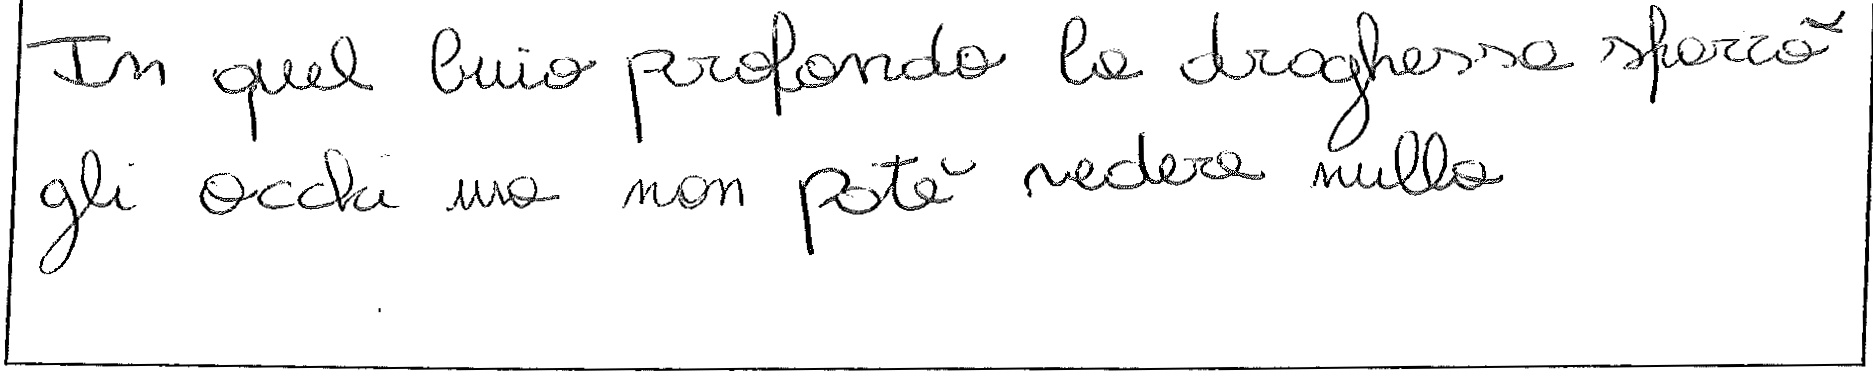 In quel buio profondo la draghessa sparrò
gli occhi ma non potè vedere nulla